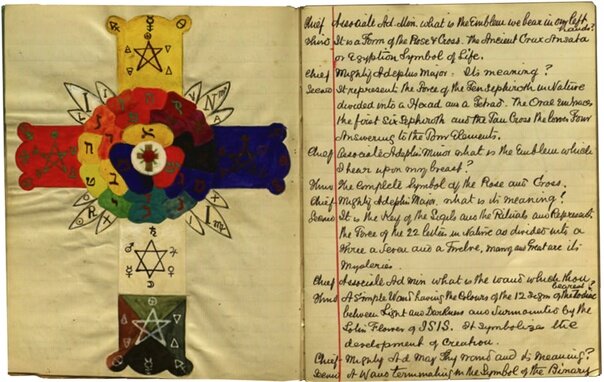 Chief Associate Ad. Min. what is the Emblem we bear in our left
hands?
It is a Form of the Rose & Cross. The Ancient Crux Ansata
or Egyptian Symbol of Life.
Chief Mighty Adeptus Major. Its meaning?
It represent the Force of the Ten Sephiroth in Nature
divided into a Hexad and a Tetrad. The Oval embraces
the first Six Sephiroth and the Tau Cross the lower Four
Answering to the Four Elements.
Chief Associate Adeptus Minor what is the Emblem which
I bear upon my breast?
The Complete Symbol of the Rose and Cross.
Chief Mighty Adeptus Major, what is its meaning?
It is the Key of the Sigils and the Rituals and Represents
the Force of the 22 letters in Nature as divided into a
Three a Seven and a Twelve, many and Great are its
Mysteries.
Chief Associate Ad Min what is the wand which thou
bearest?
A Simple Wand having the Colours of the 12 Signs of the Zodiac
between Light and Darkness and Surmounted by the
Lotus Flower of ISIS. It Symbolizes the
development of Creation.
Chief Mighty Ad Maj Thy wand and its Meaning?
A Wand terminating in the Symbol of the Binary
I
N
R
I